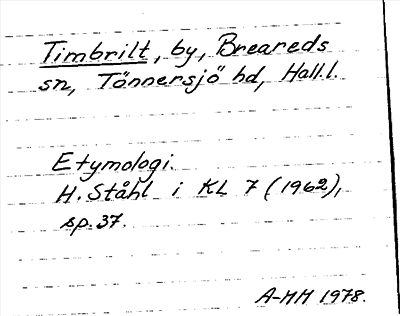 Timbrilt, by, Breareds
sn, Tönnersjö hd, Hall.l.
Etymologi.
H. Ståhl i KL 7 (1962),
sp. 37.
A-MM 1978.